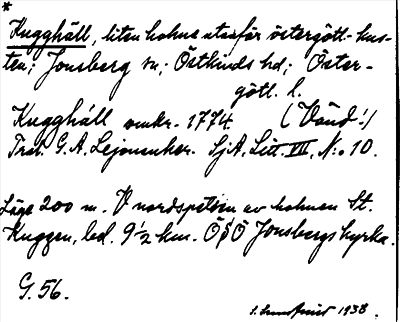 *
Kugghäll, liten holme utanför östergötl. kus-
ten; Jonsberg sn; Östkinds hd; Öster-
götl. l.
Kugghåll omkr. 1774. (Vänd!)
Trol. G. A. Lejonanker. SjA, Litt. VII, N:o 10.
Läge 200 m. V nordspetsen av holmen St.
Kuggen, bel. 9 1/2 km. Ö§Ö Jonsbergs kyrka.
G. 56.
1938.